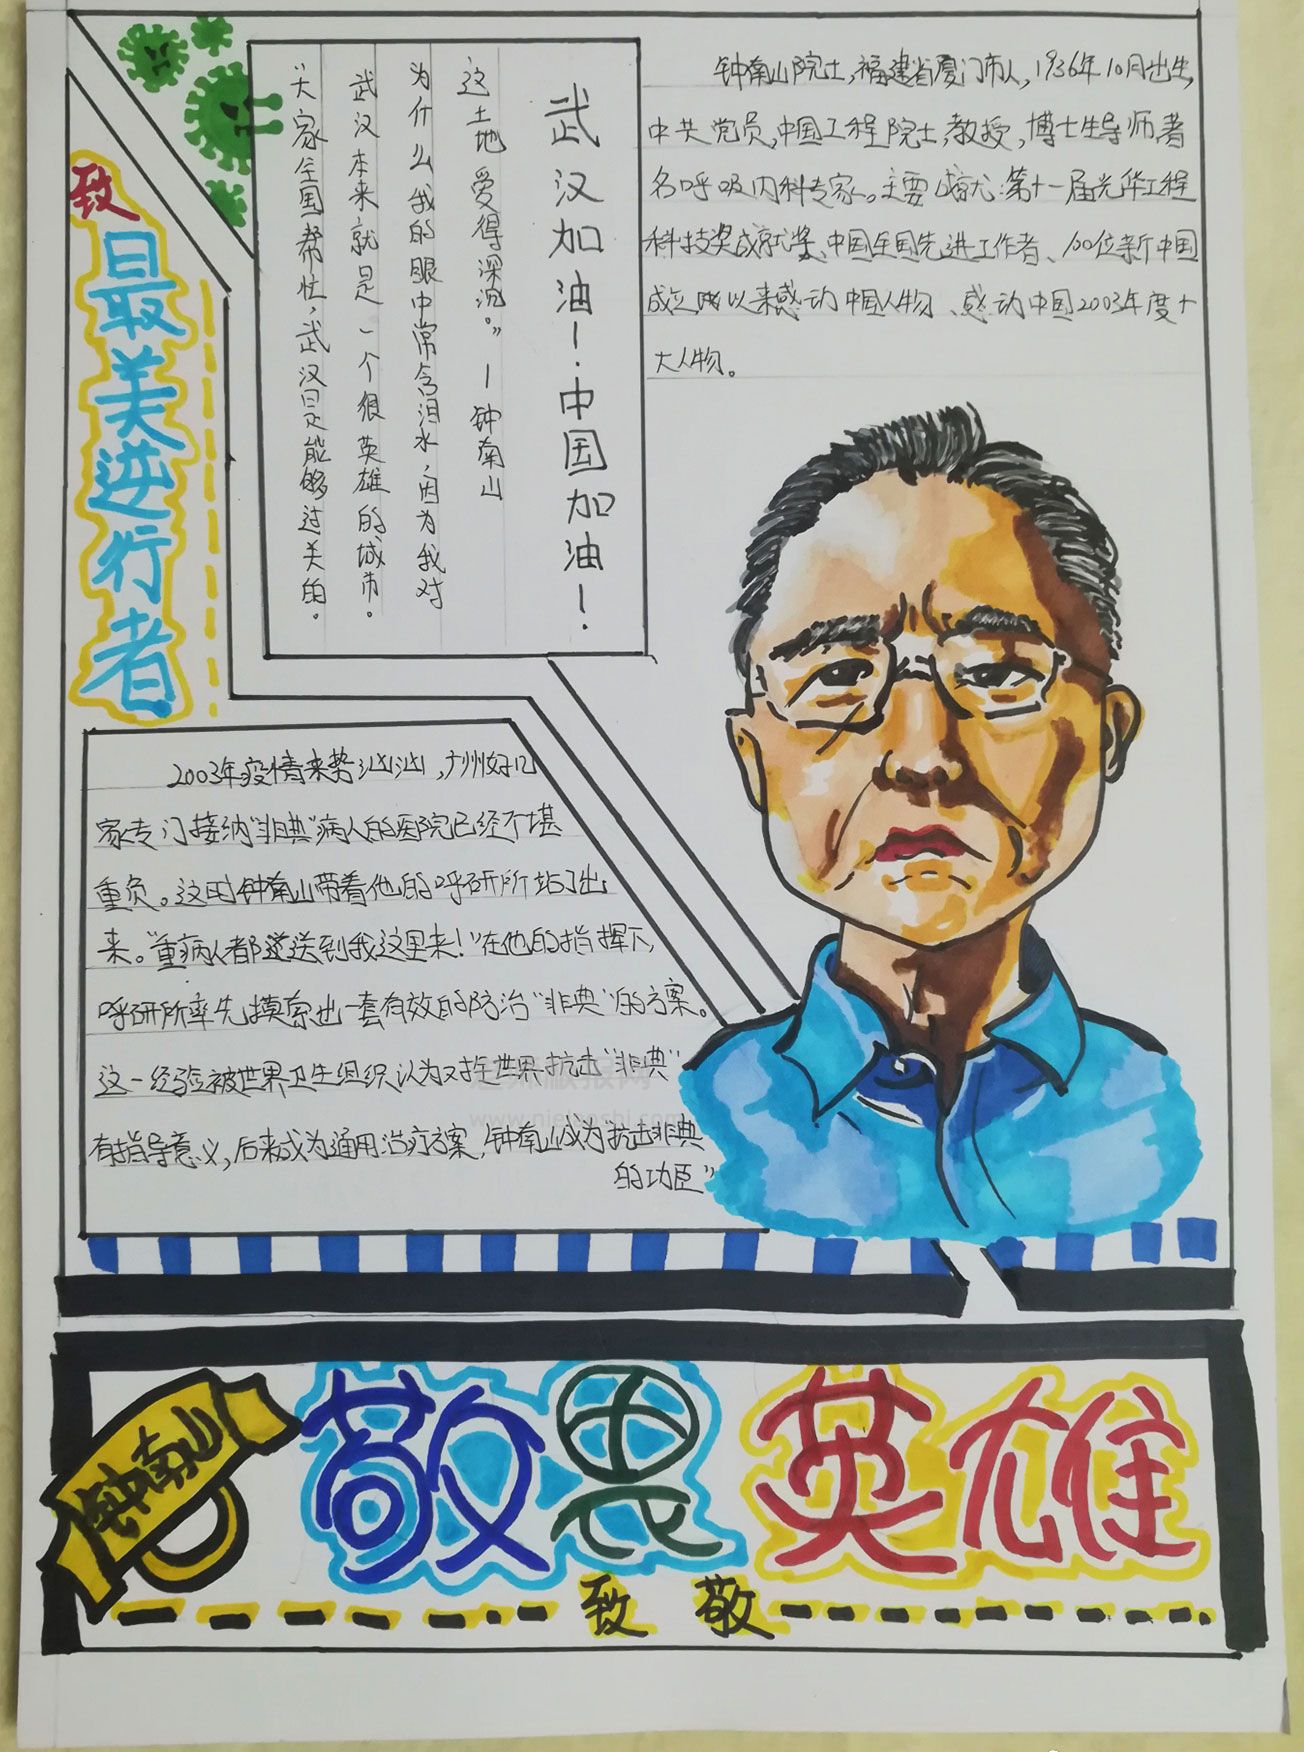 致
最美逆行者
武汉加油！中国加油！
“大家全国帮忙，武汉是能够过关的。
武汉本来就是一个很英雄的城市。
为什么我的眼中常含泪水，因为我对
这土地爱得深沉。”—钟南山
钟南山院士，福建省厦门市人，1936年10月出生，
中共党员，中国工程院士，教授，博士生导师，著
名呼吸内科专家。主要成就：第十一届光华工程
科技奖成就奖、中国全国先进工作者、100位新中国
成立以来感动中国人物、感动中国2003年度十
大人物。
2003年疫情来势汹汹，广州好几
家专门接纳“非典”病人的医院已经不堪
重负。这时钟南山带着他的呼研所站了出
来。“重病人都送到我这里来！”在他的指挥下，
呼研所率先摸索出一套有效的防治“非典”的方案。
这一经验被世界卫生组织认为对全世界抗击“非典”
有指导意义，后来成为通用治疗方案，钟南山成为“抗击非典
的功臣”
www.njelaoshi.com
钟南山
敬畏英雄
致敬